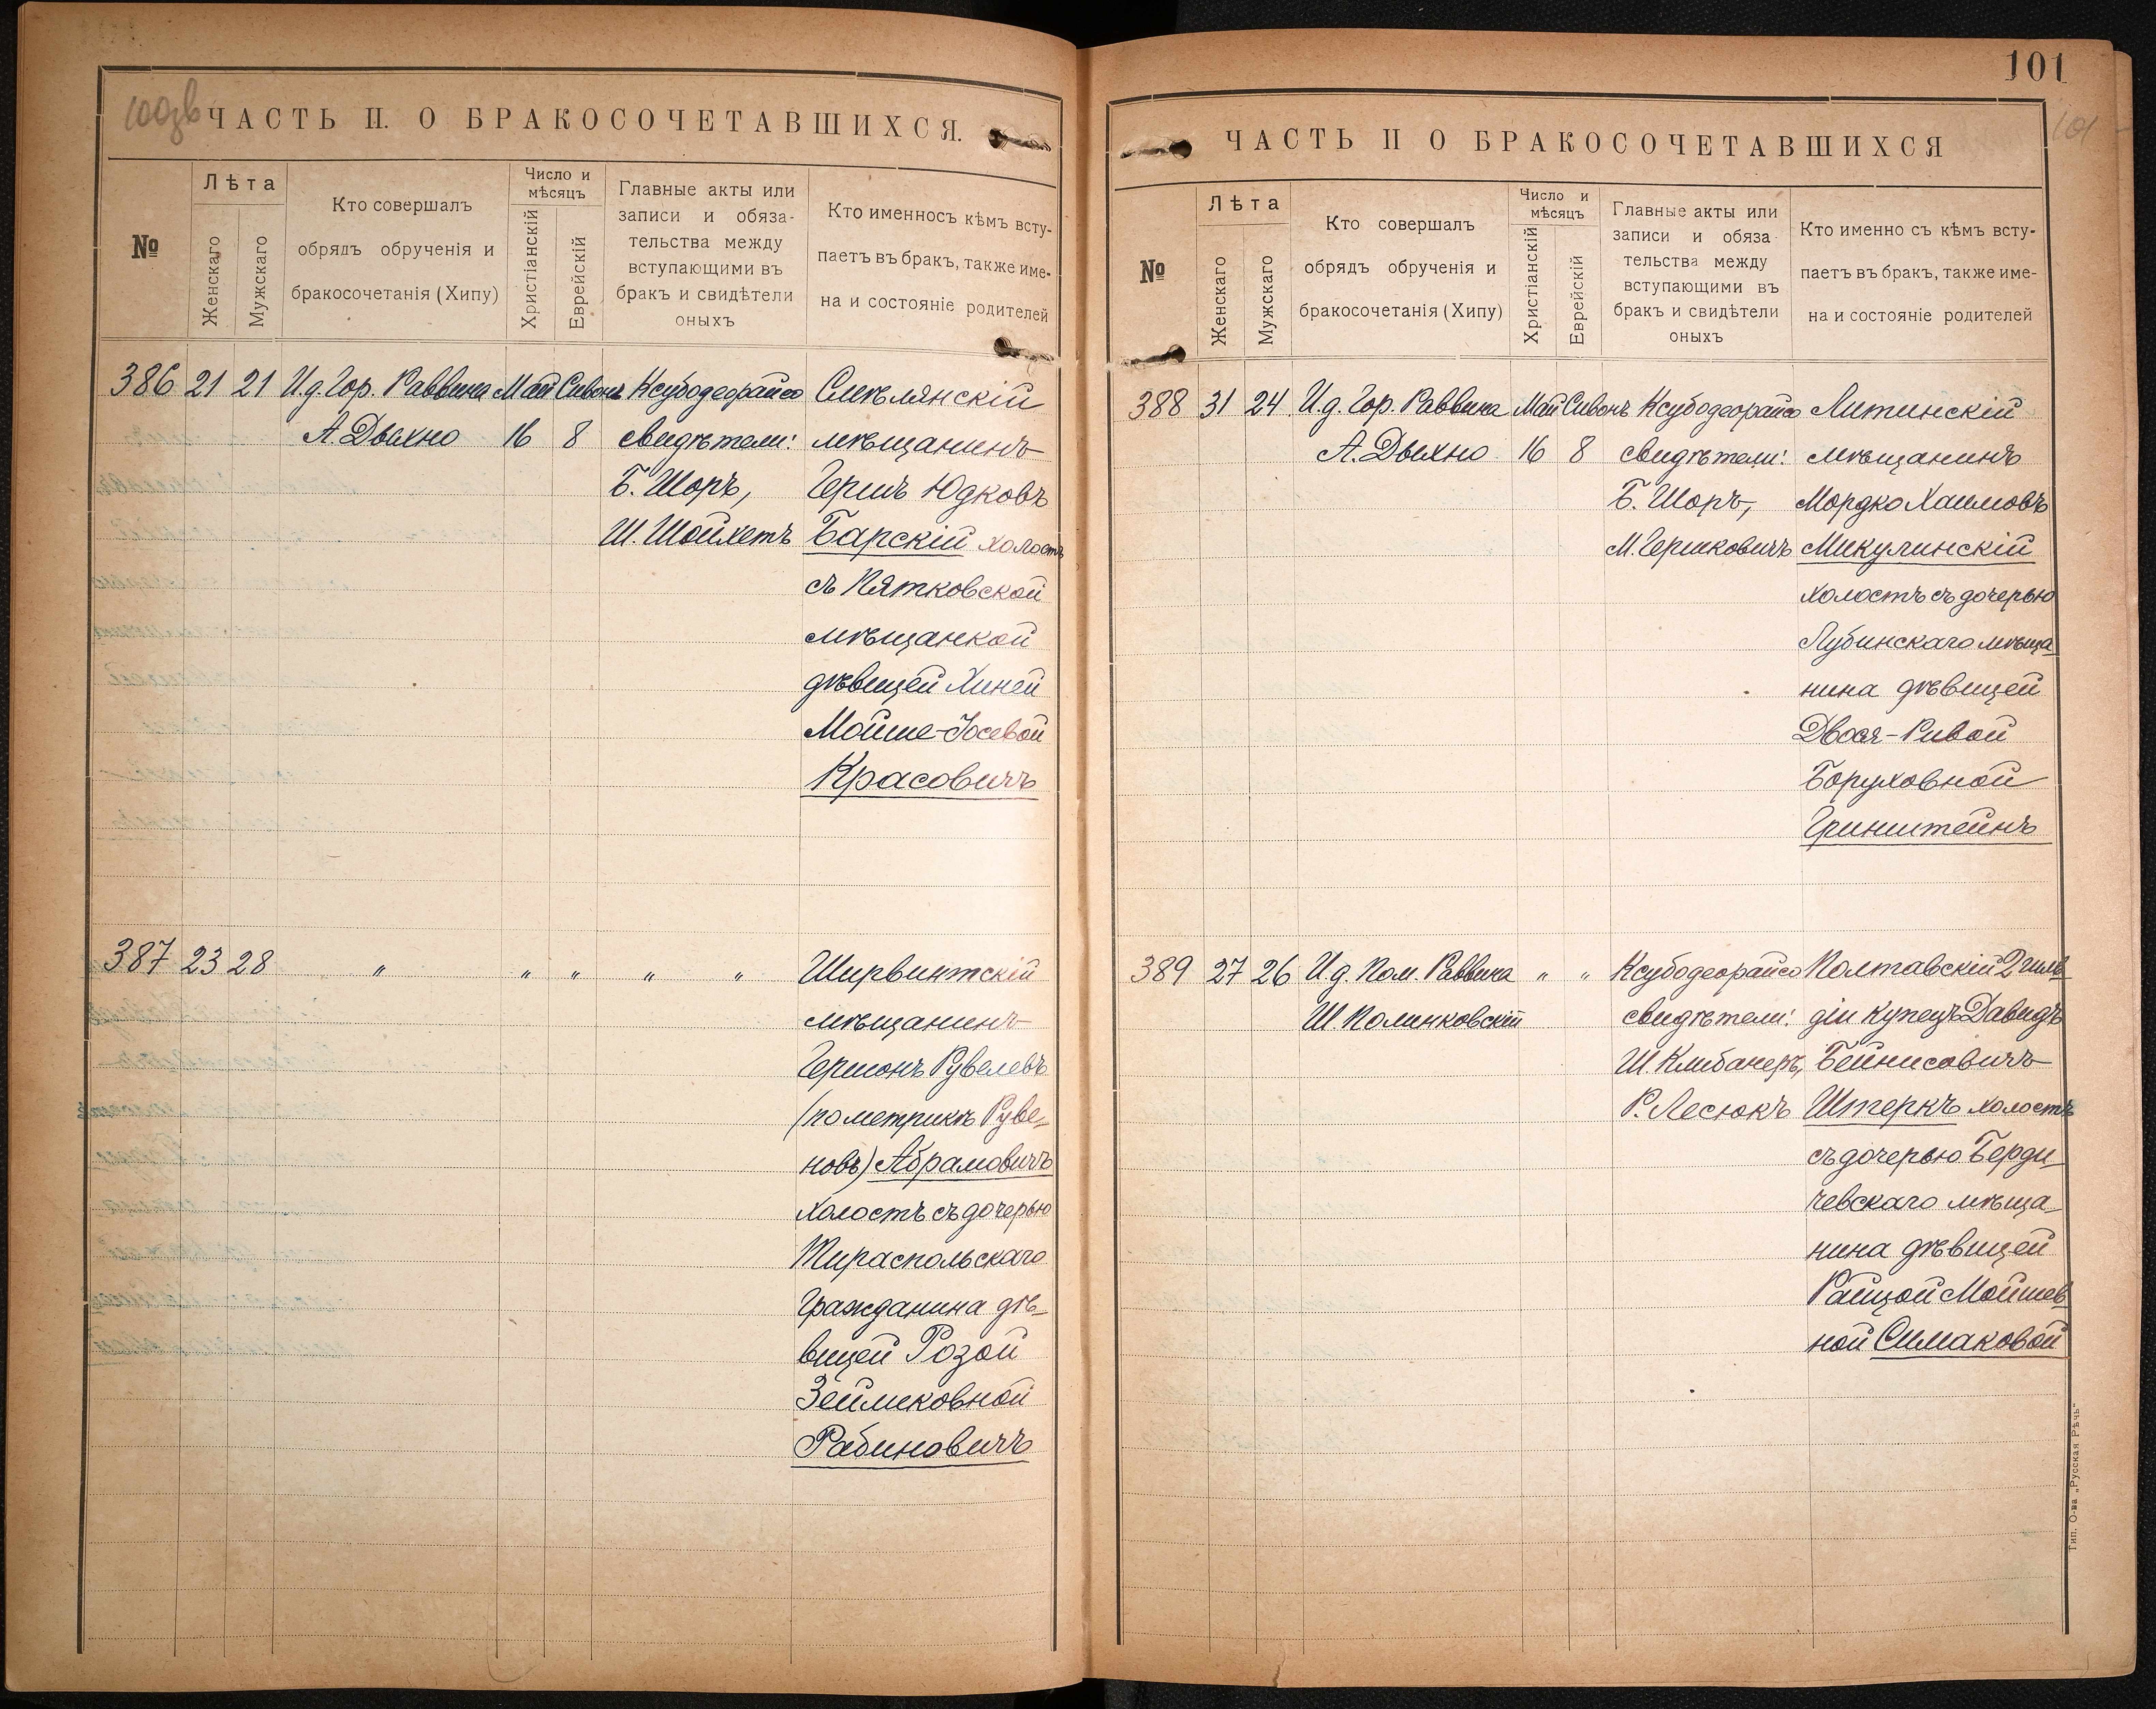 100зв
ЧАСТЬ II. О БРАКОСОЧЕТАВШИХСЯ.
№
Лѣта
Женскаго
Мужскаго
Кто совершалъ
обрядъ обрученія и
бракосочетанія (Хипу)
Число и
мѣсяцъ
Христіанскій
Еврейскій
Главные акты или
записи и обяза-
тельства между
вступающими въ
бракъ и свидѣтели
оныхъ
Кто именносъ кѣмъ всту-
паетъ въ бракъ, также име-
на и состояніе родителей
386 21 21 И.д. Гор. Раввина Май Сивонъ Ксубодеорайсо Смѣлянскій
А Дыхно 16 8 свидѣтели: мѣщанинъ
Б. Шоръ, Гершъ Юдковъ
Ш. Шойхетъ Барскій холостъ
съ Пятковской
мѣщанкой
дѣвицей Хиней
Мойше-Іосевой
Красовичъ
387 23 28 " " " " " Ширвинтскій
мѣщанинъ
Гершонъ Рувелевъ
(по метрикѣ Руве-
новъ) Абрамовичъ
холостъ съ дочерью
Тираспольскаго
гражданина дѣ-
вицей Розой
Зеймековной
Рабиновичъ
101
101
ЧАСТЬ II О БРАКОСОЧЕТАВШИХСЯ
№
Лѣта
Женскаго
Мужскаго
Кто совершалъ
обрядъ обрученія и
бракосочетанія (Хипу)
Число и
мѣсяцъ
Христіанскій
Еврейскій
Главные акты или
записи и обяза
тельства между
вступающими въ
бракъ и свидѣтели
оныхъ
Кто именно съ кѣмъ всту-
паетъ въ бракъ, также име-
на и состояніе родителей
388 31 24 И.д. Гор. Раввина Май Сивонъ Ксубодеорайсо Литинскій
А. Дыхно 16 8 свидѣтели: мѣщанинъ
Б. Шоръ, Мордко Хаимовъ
М. Гершковичъ Микулинскій
холостъ съ дочерью
Лубинскаго мѣща-
нина дѣвицей
Двося-Ривой
Боруховной
Гринштейнъ
389 27 26 И.д. Пом. Раввина " " Ксубодеорайсо Полтавскій 2 гиль-
Ш Полинковскій свидѣтели: діи купецъ Давидъ
Ш Клибанеръ, Бейнисовичъ
Р. Лесюкъ Штеркъ холостъ
съ дочерью Берди-
чевскаго мѣща-
нина дѣвицей
Райцой Мойшев-
ной Симаковой
Тип. О-ва „Русская Рѣчь"